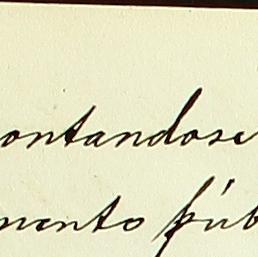 ontandose
mento púb